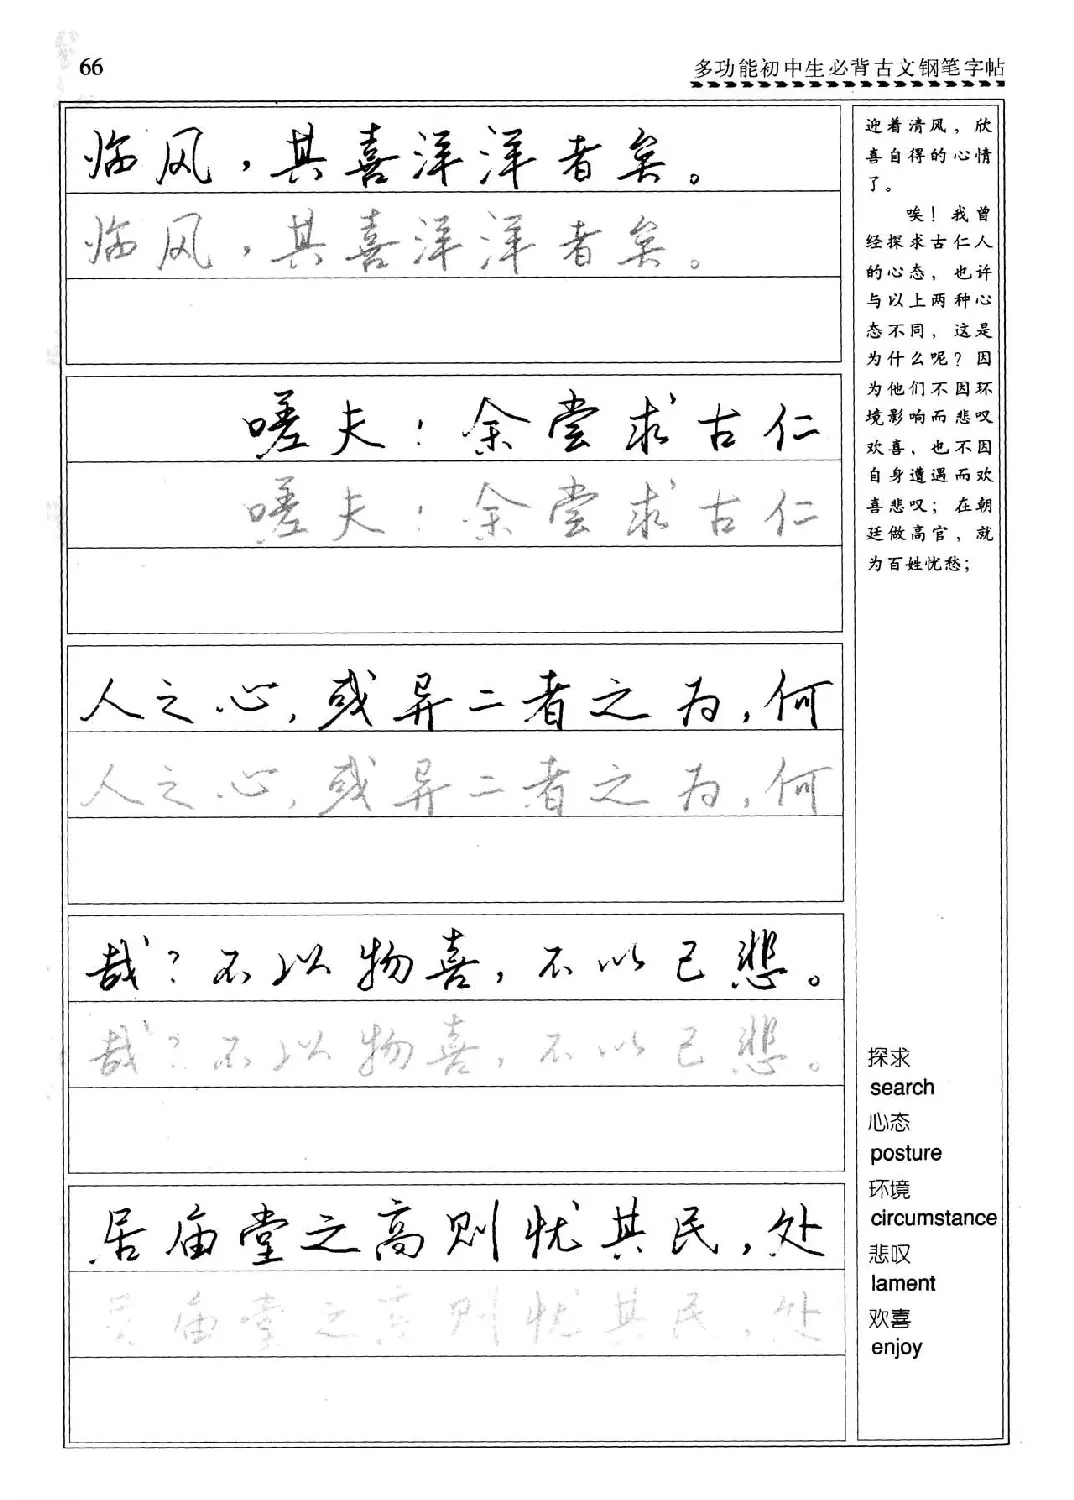 66
多功能初中生必背古文钢笔字帖
临风，其喜洋洋者矣。
临风，其喜洋洋者矣。
嗟夫！余尝求古仁
嗟夫！余尝求古仁
人之心，或异二者之为，何
人之心，或异二者之为，何
哉？不以物喜，不以己悲。
哉？不以物喜，不以己悲。
居庙堂之高则忧其民，处
居庙堂之高则忧其民，处
迎着清风，欣
喜自得的心情
了。
唉！我曾
经探求古仁人
的心态，也许
与以上两种心
态不同，这是
为什么呢？因
为他们不因环
境影响而悲叹
欢喜，也不因
自身遭遇而欢
喜悲叹；在朝
廷做高官，就
为百姓忧愁；
探求
search
心态
posture
环境
circumstance
悲叹
lament
欢喜
enjoy